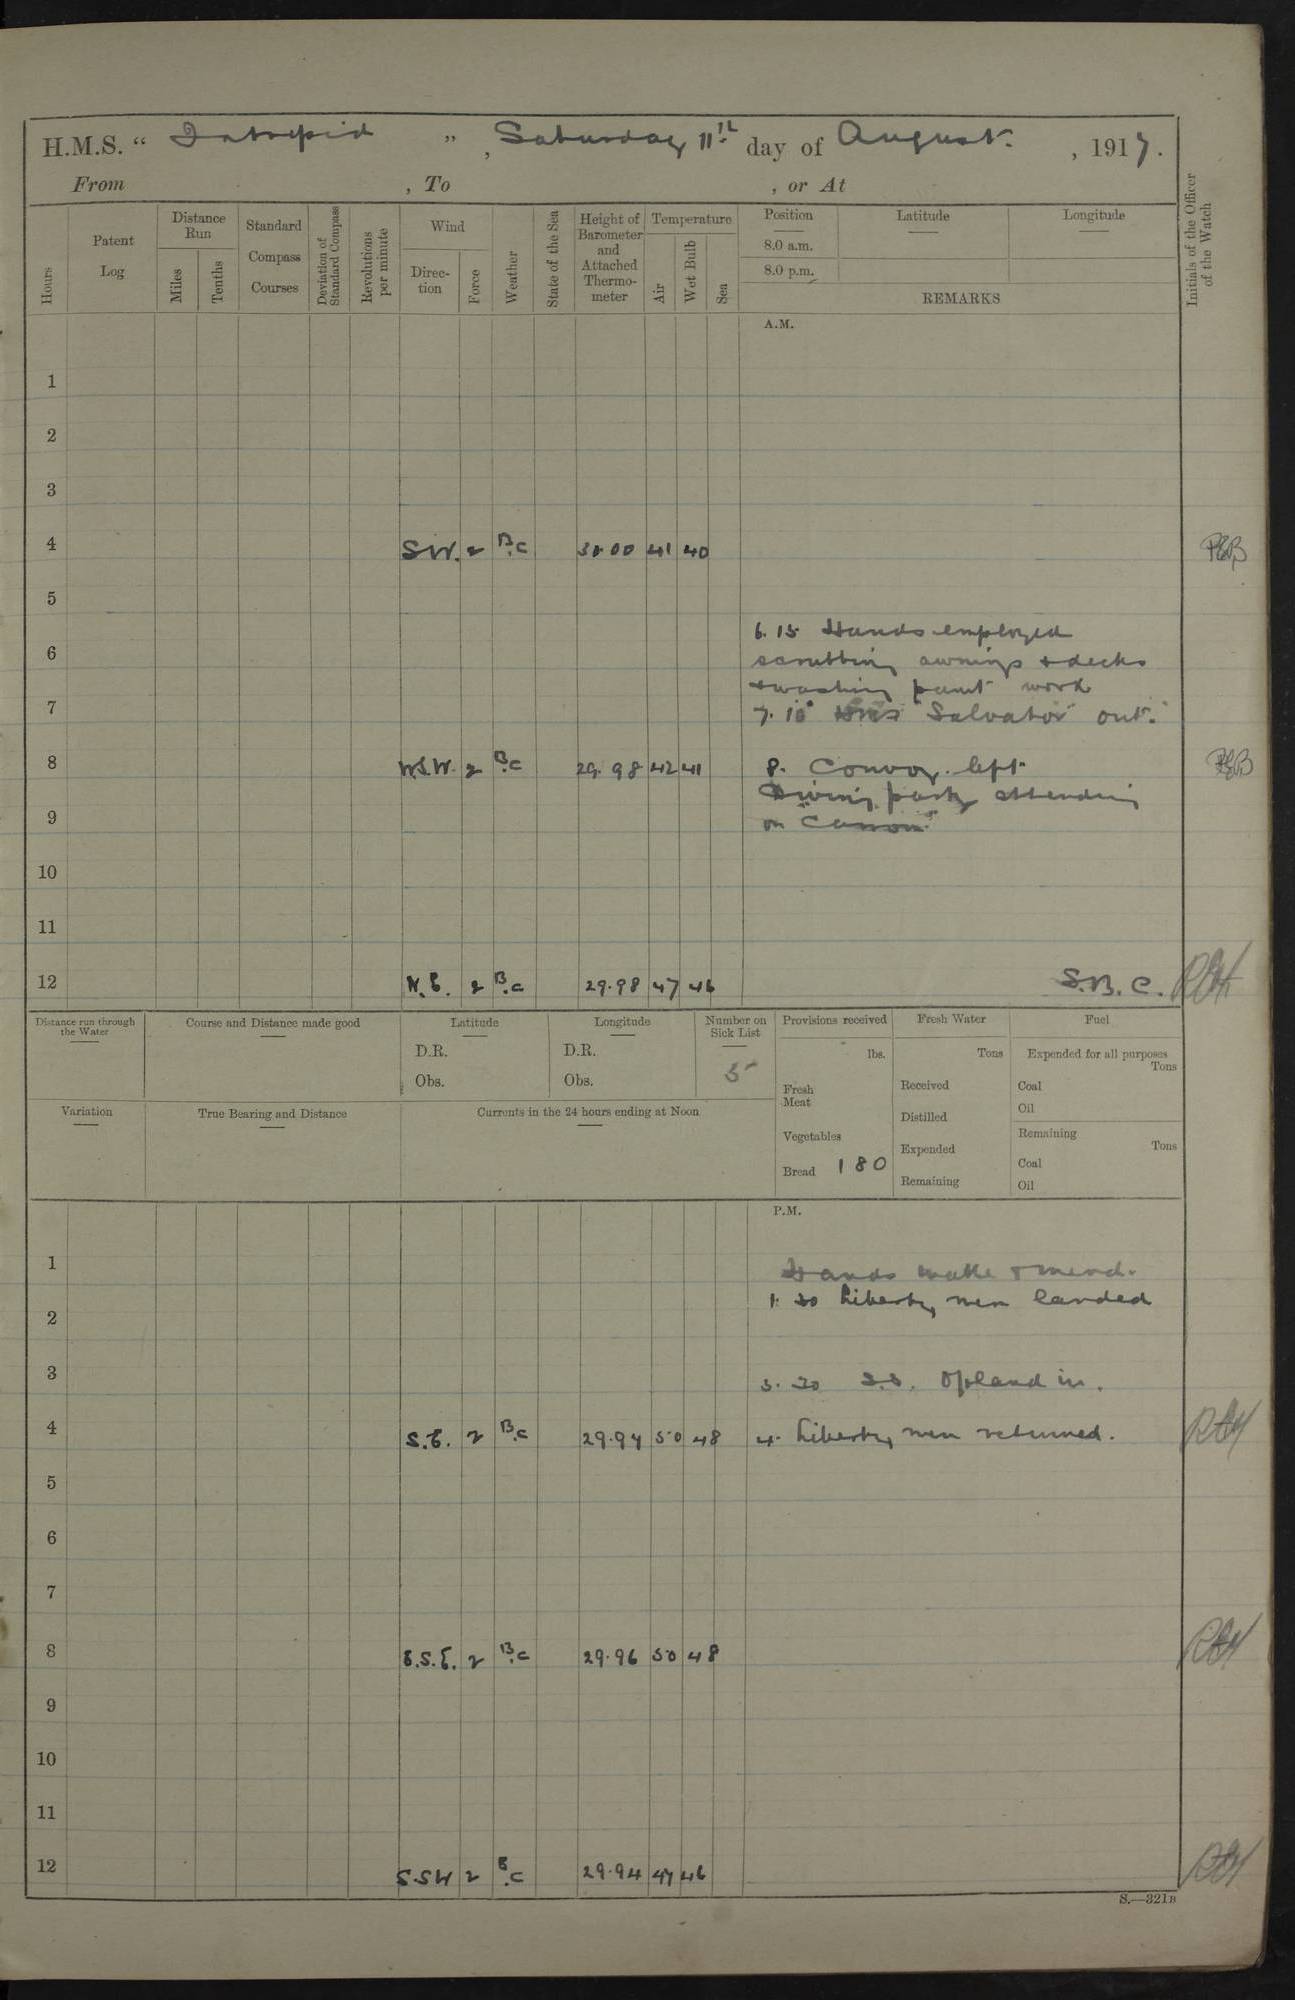 H.M.S. “ Intrepid ” , Saturday 11th day of August. , 1917.
From , To , or At
Hours
Patent Log
Distance Run
Miles
Tenths
Standard Compass Courses
Deviation of Standard Compass
Revolutions per minute
Wind
Direc-tion
Force
Weather
State of the Sea
Height of Barometer and Attached Thermo-meter
Temperature
Air
Wet Bulb
Sea
Position
8.0 a.m.
8.0 p.m.
Latitude
Longitude
REMARKS
Initials of the Officer of the Watch
A.M.
1
2
3
4 S.W. 2 B.C 30.00 41 40
5
6.15 Hands employed
6
scrubbing awnings & decks
& washing paint work
7
7.10 "Salvator" out.
8 W.S.W. 2 B.C 29.98 42 41 8. Convoy left.
Diving party attending
9
on
10
11
12 N.E. 2 B.C 29.98 47 46 S.B.C.
Distance run through the Water
Course and Distance made good
Latitude
D.R.
Obs.
Longitude
D.R.
Obs.
Number on Sick List
5
Provisions received
lbs.
Fresh Meat
Vegetables
Bread 180
Fresh Water
Tons
Received
Distilled
Expended
Remaining
Fuel
Expended for all purposes
Tons
Coal
Oil
Remaining
Tons
Coal
Oil
Variation
True Bearing and Distance
Currents in the 24 hours ending at Noon
P.M.
1
Hands make & mend.
1.30 Liberty men landed
2
3
3.30 S.S. Opland in.
4 S.E. 2 B.C 29.94 50 48 4. Liberty men returned.
5
6
7
8 E.S.E. 2 B.C 29.96 50 48
9
10
11
12 S.SW 2 B.C 29.94 47 46
S.—321B